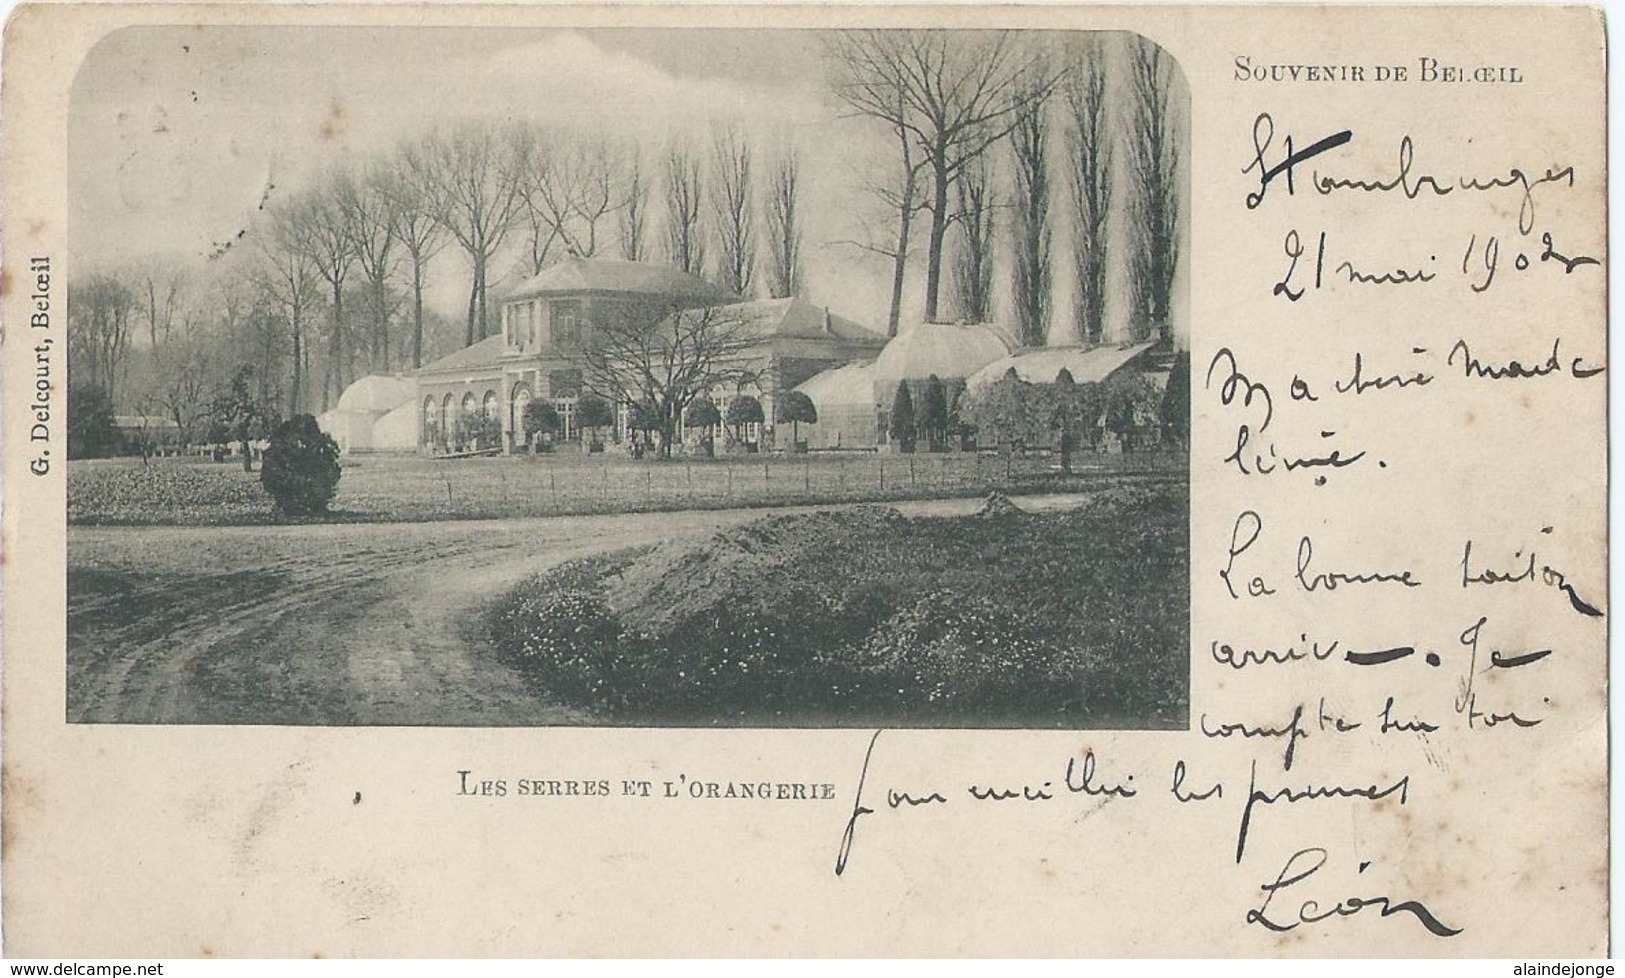 Souvenir de Belœil
Stambruges
21 mai 1902
Ma chère Made
leine.
La bonne saison
arrive. Je
compte sur toi
pour cueillir les prunes
Léon
Les serres et l'orangerie
G. Delcourt, Belœil
www.delcampe.net
alaindejonge